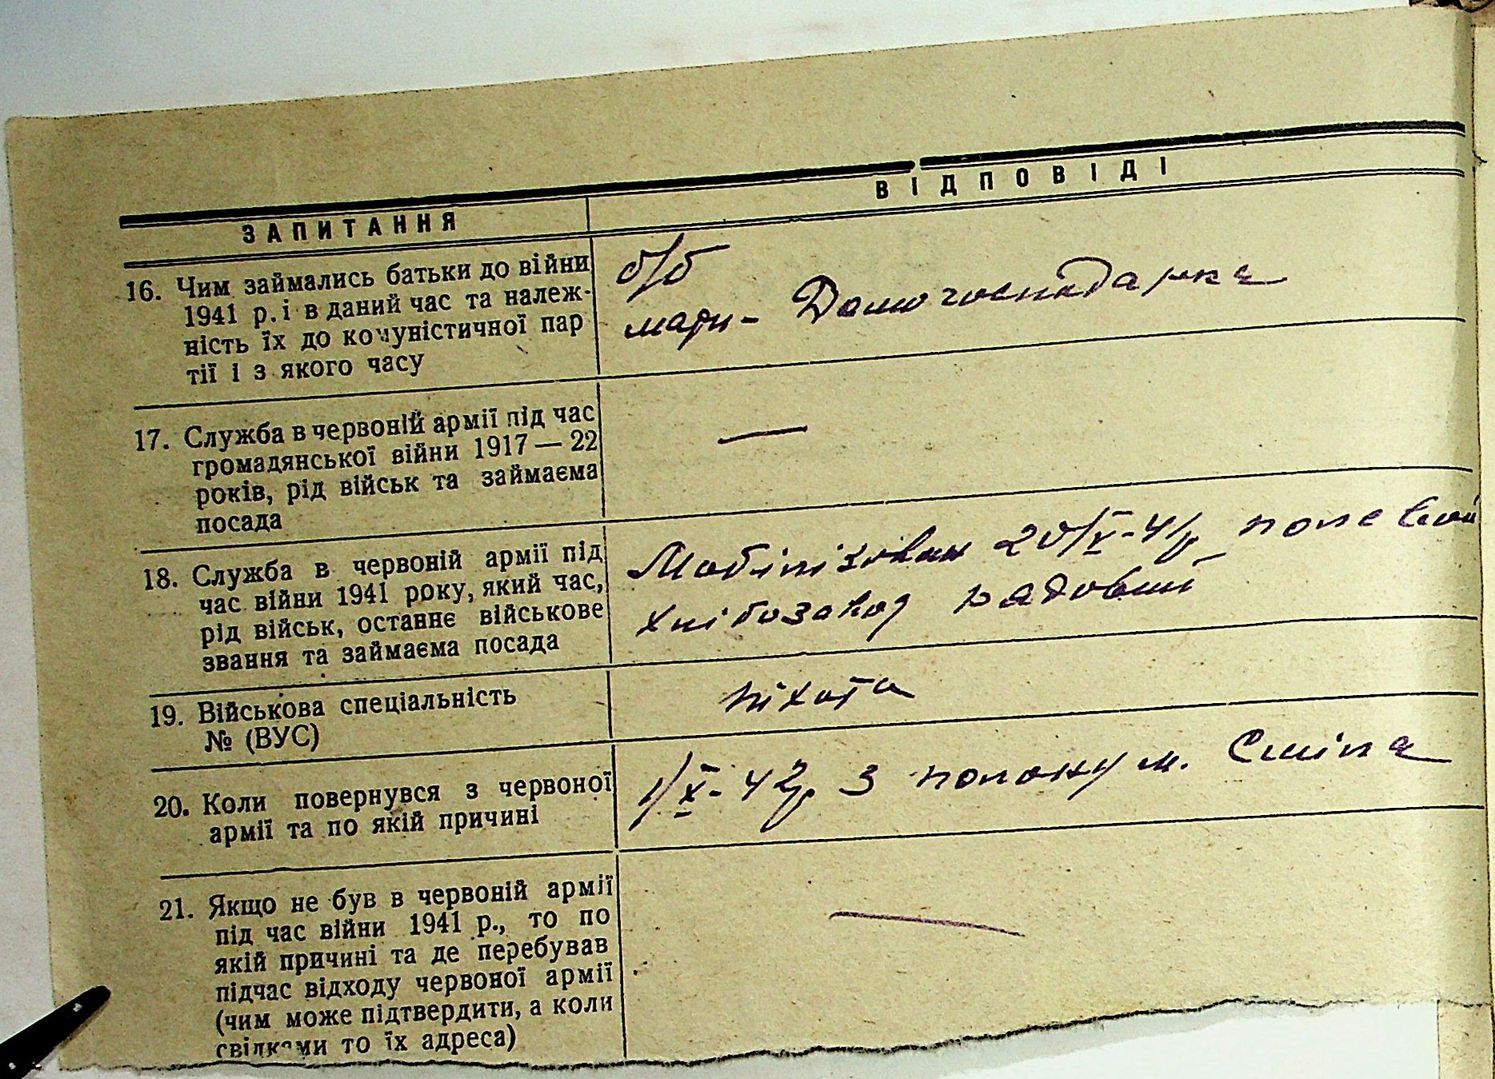 ЗАПИТАННЯ
ВІДПОВІДІ
16. Чим займались батьки до війни
1941 р. і в даний час та належ-
ність їх до комуністичної пар
тії і з якого часу
б/б
мати - Домогосподарка
17. Служба в червоній армії під час
громадянської війни 1917 — 22
років, рід військ та займаєма
посада
—
18. Служба в червоній армії під
час війни 1941 року, який час,
рід військ, останнє військове
звання та займаєма посада
Мобілізован 20/V-41р польовий
хлібозавод рядовий
19. Військова спеціальність
№ (ВУС)
піхота
20. Коли повернувся з червоної
армії та по якій причині
1/X-42р з полону м. Сміла
21. Якщо не був в червоній армії
під час війни 1941 р., то по
якій причині та де перебував
підчас відходу червоної армії
(чим може підтвердити, а коли
свідками то їх адреса)
—